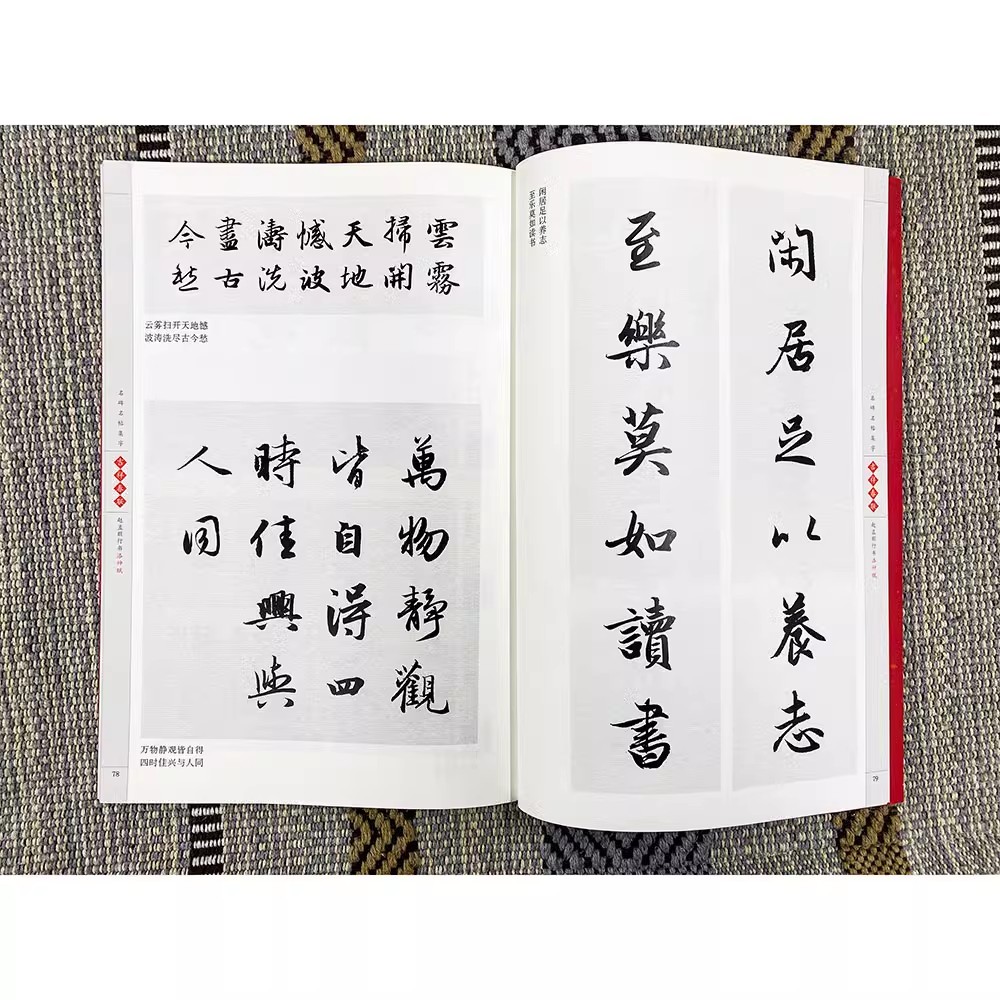 雲霧
掃開
天地
憾波
濤洗
盡古
今愁
云雾扫开天地憾
波涛洗尽古今愁
萬物靜觀
皆自得四
時佳興與
人同
万物静观皆自得
四时佳兴与人同
名碑名帖集字
吉祥春联
赵孟頫行书洛神赋
78
闲居足以养志
至乐莫如读书
閑居足以養志
至樂莫如讀書
名碑名帖集字
吉祥春联
赵孟頫行书洛神赋
79